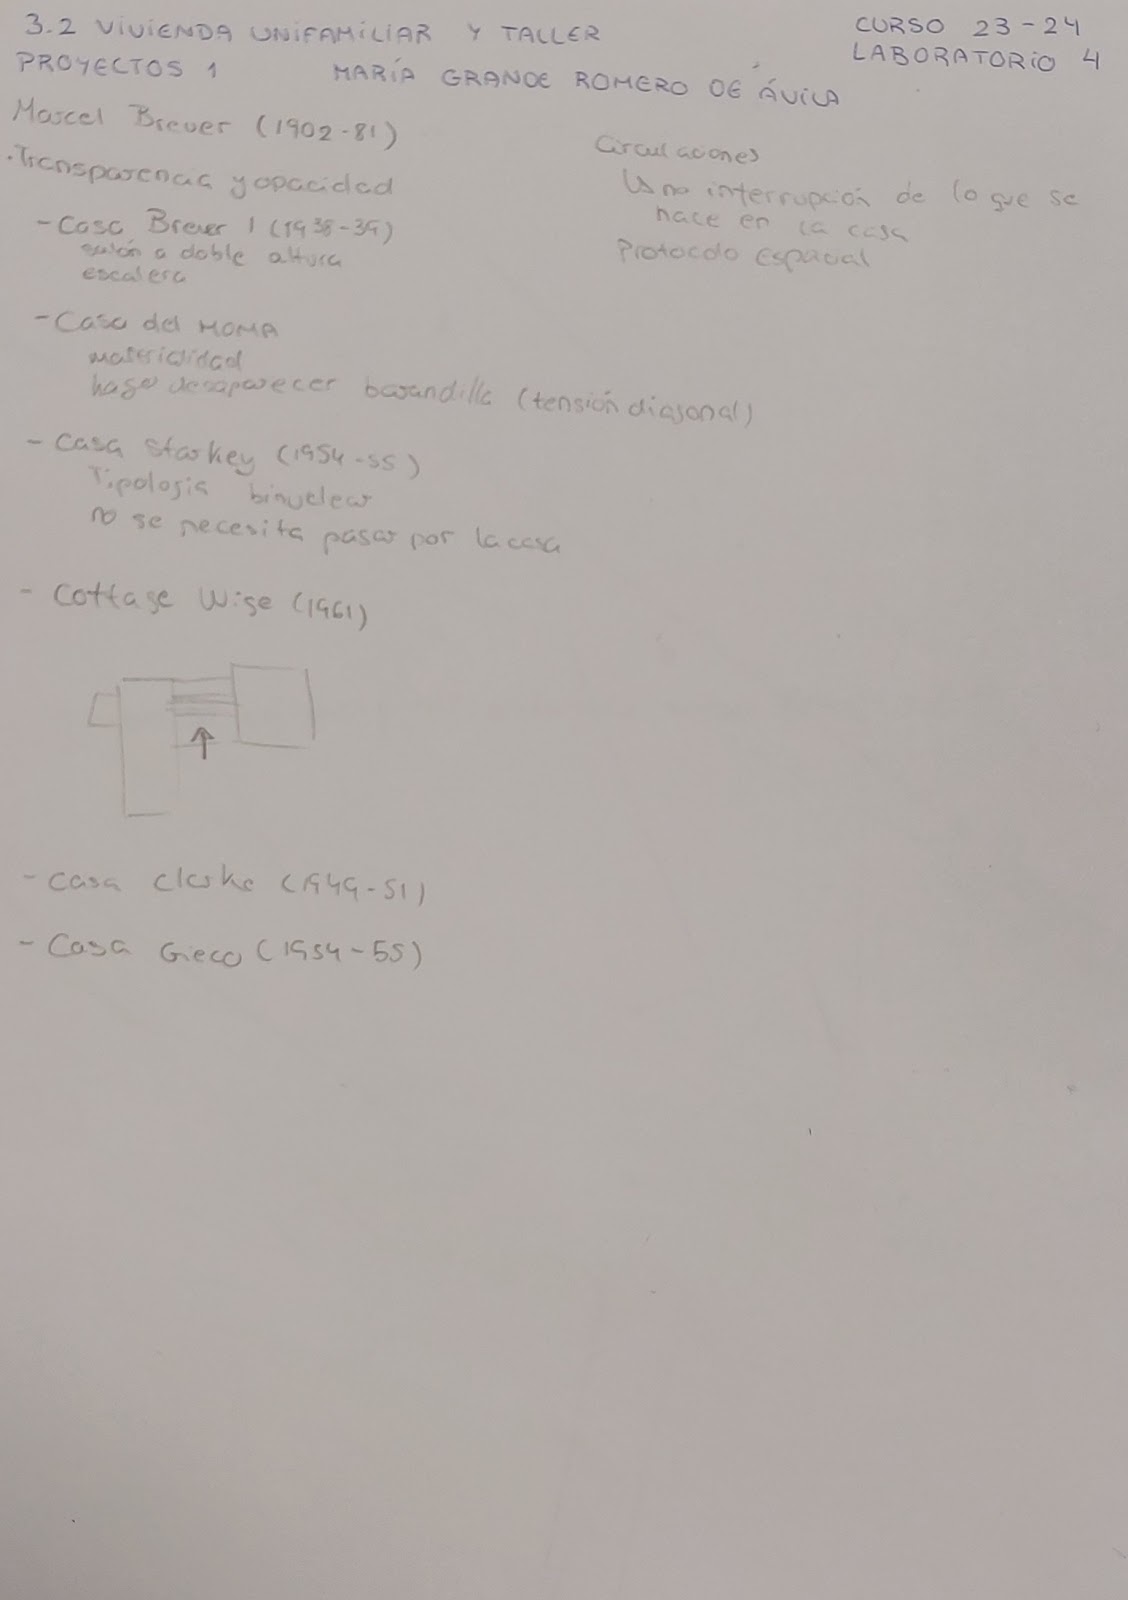 3.2 VIVIENDA UNIFAMILIAR Y TALLER
CURSO 23-24
PROYECTOS 1
MARÍA GRANDE ROMERO DE ÁVILA
LABORATORIO 4
Marcel Breuer (1902-81)
·Transparencia y opacidad
- Casa Breuer 1 (1938-39)
salón a doble altura
escalera
- Casa del MOMA
materialidad
hace desaparecer barandilla (tensión diagonal)
- Casa Starkey (1954-55)
Tipología binuclear
no se necesita pasar por la casa
- Cottage Wise (1961)
- Casa Clarke (1949-51)
- Casa Grieco (1954-55)
Circulaciones
↳ no interrupción de lo que se
hace en la casa
Protocolo espacial